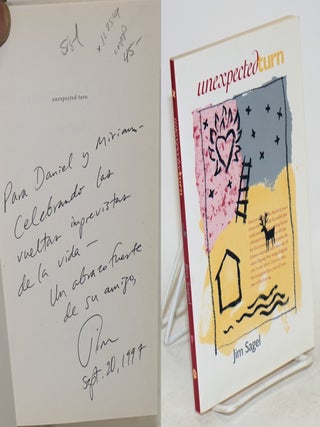 45-
unexpected turn
Para Daniel y Miriam-
Celebrando las
vueltas imprevistas
de la vida-
Un abrazo fuerte
de su amigo,
Jim
Sept. 20, 1997
unexpected turn
Jim Sagel
unexpectedturn
Jim Sagel